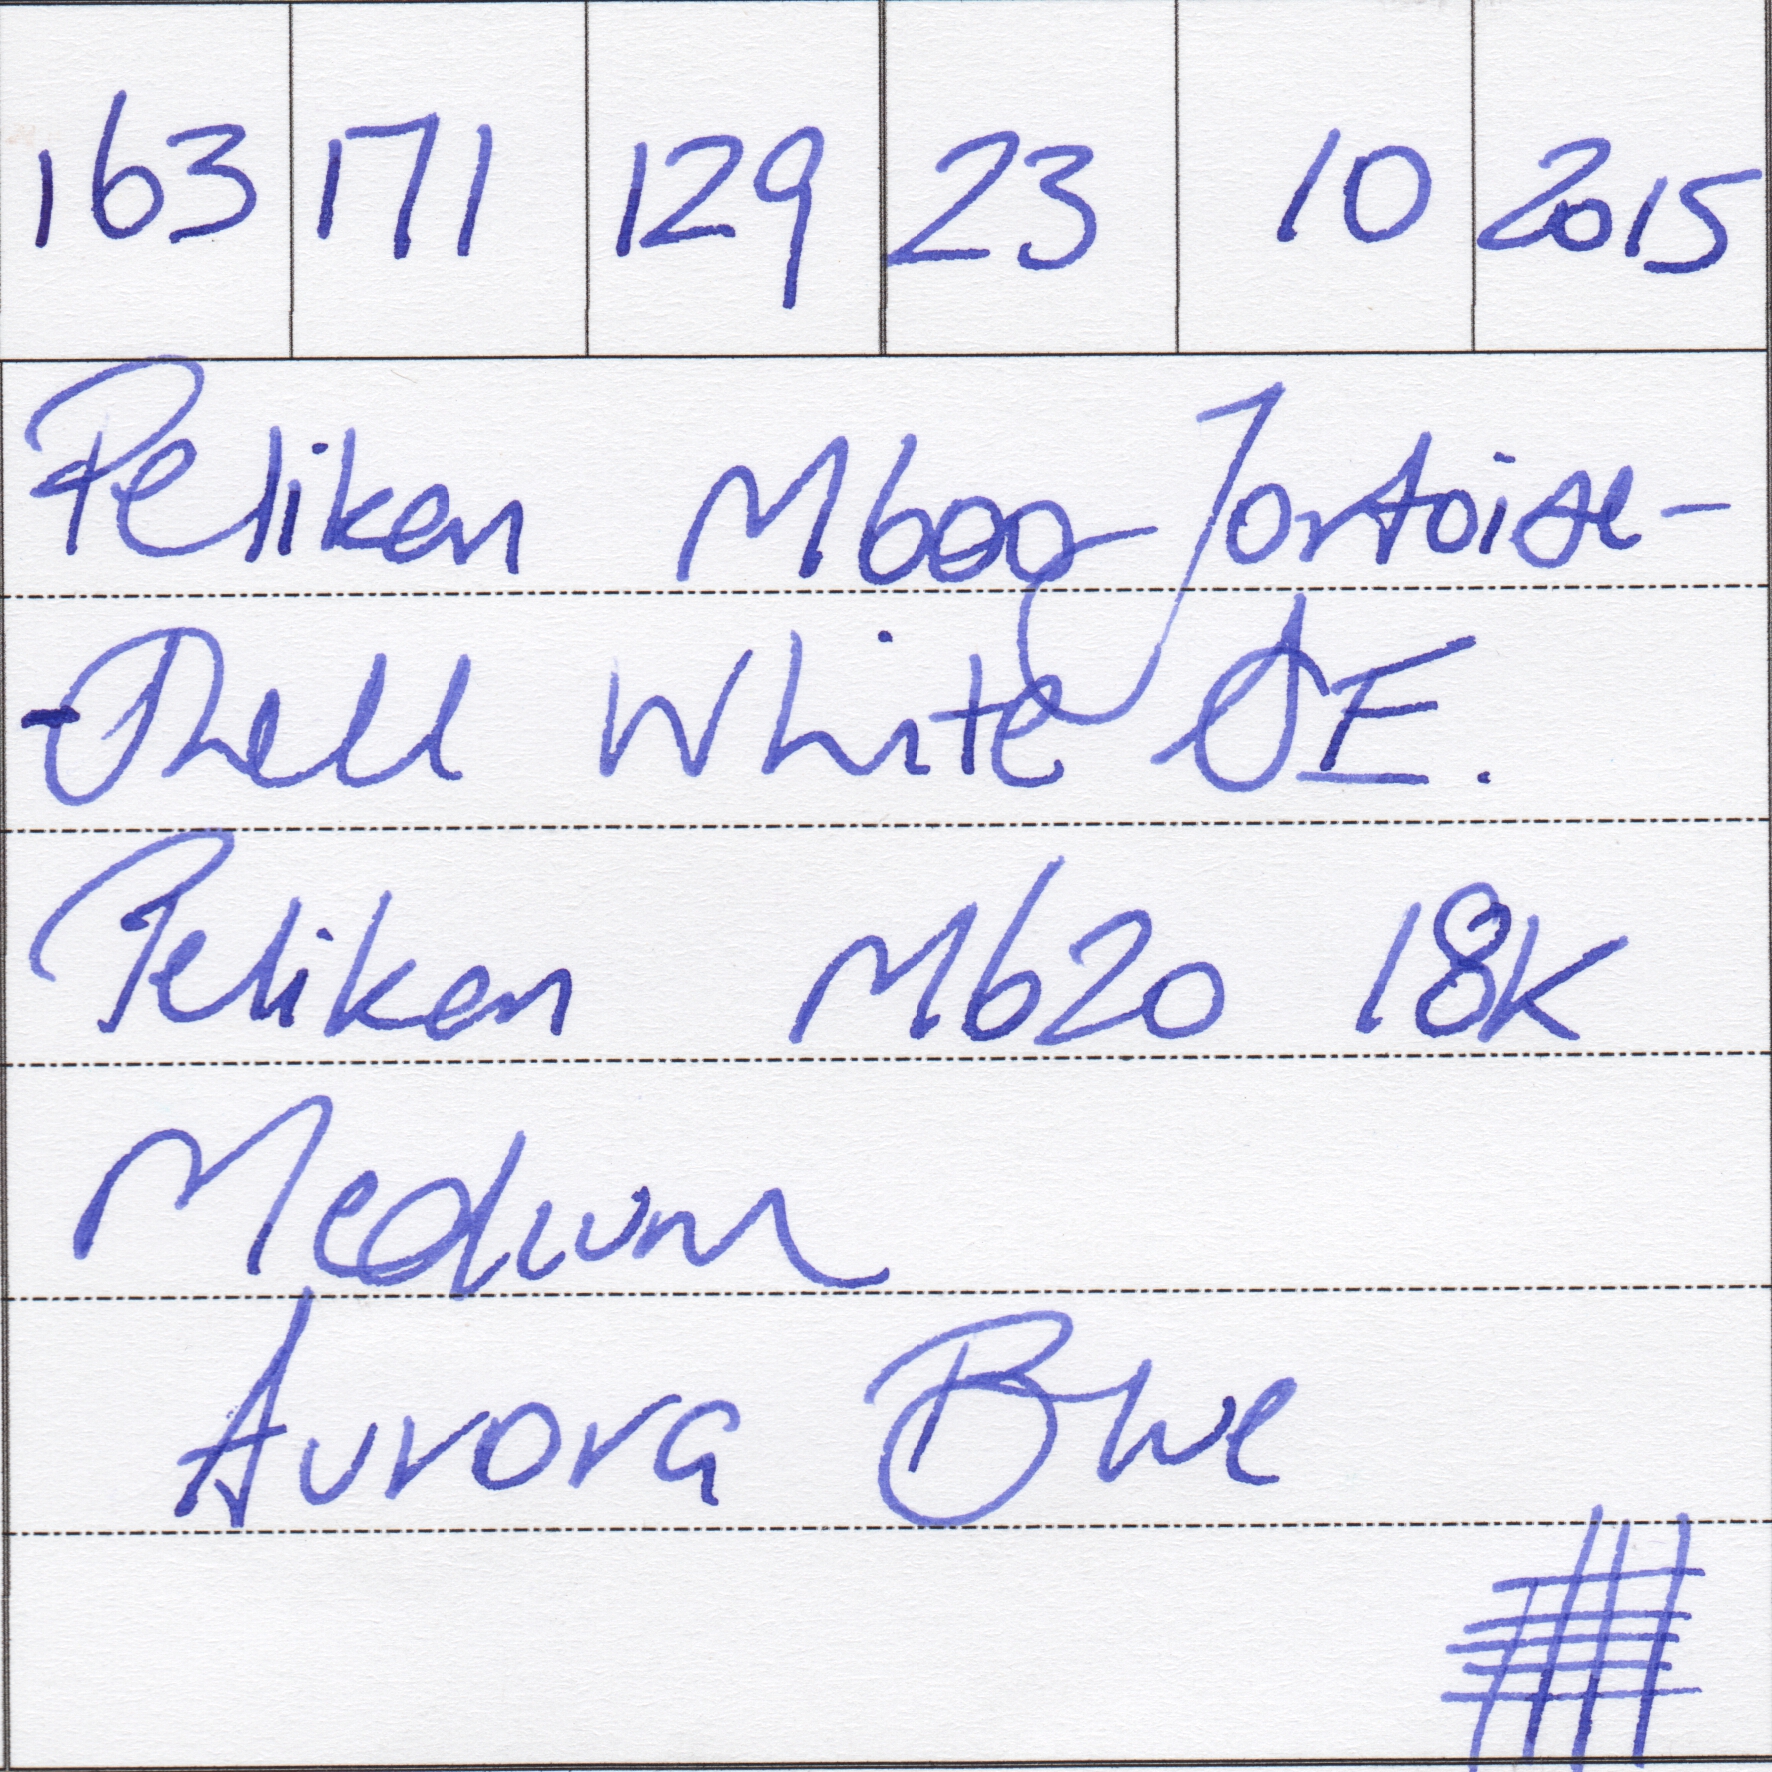 163 171 129 23 10 2015
Pelikan M600 Tortoise-
-Shell White SE.
Pelikan M620 18K
Medium
Aurora Blue